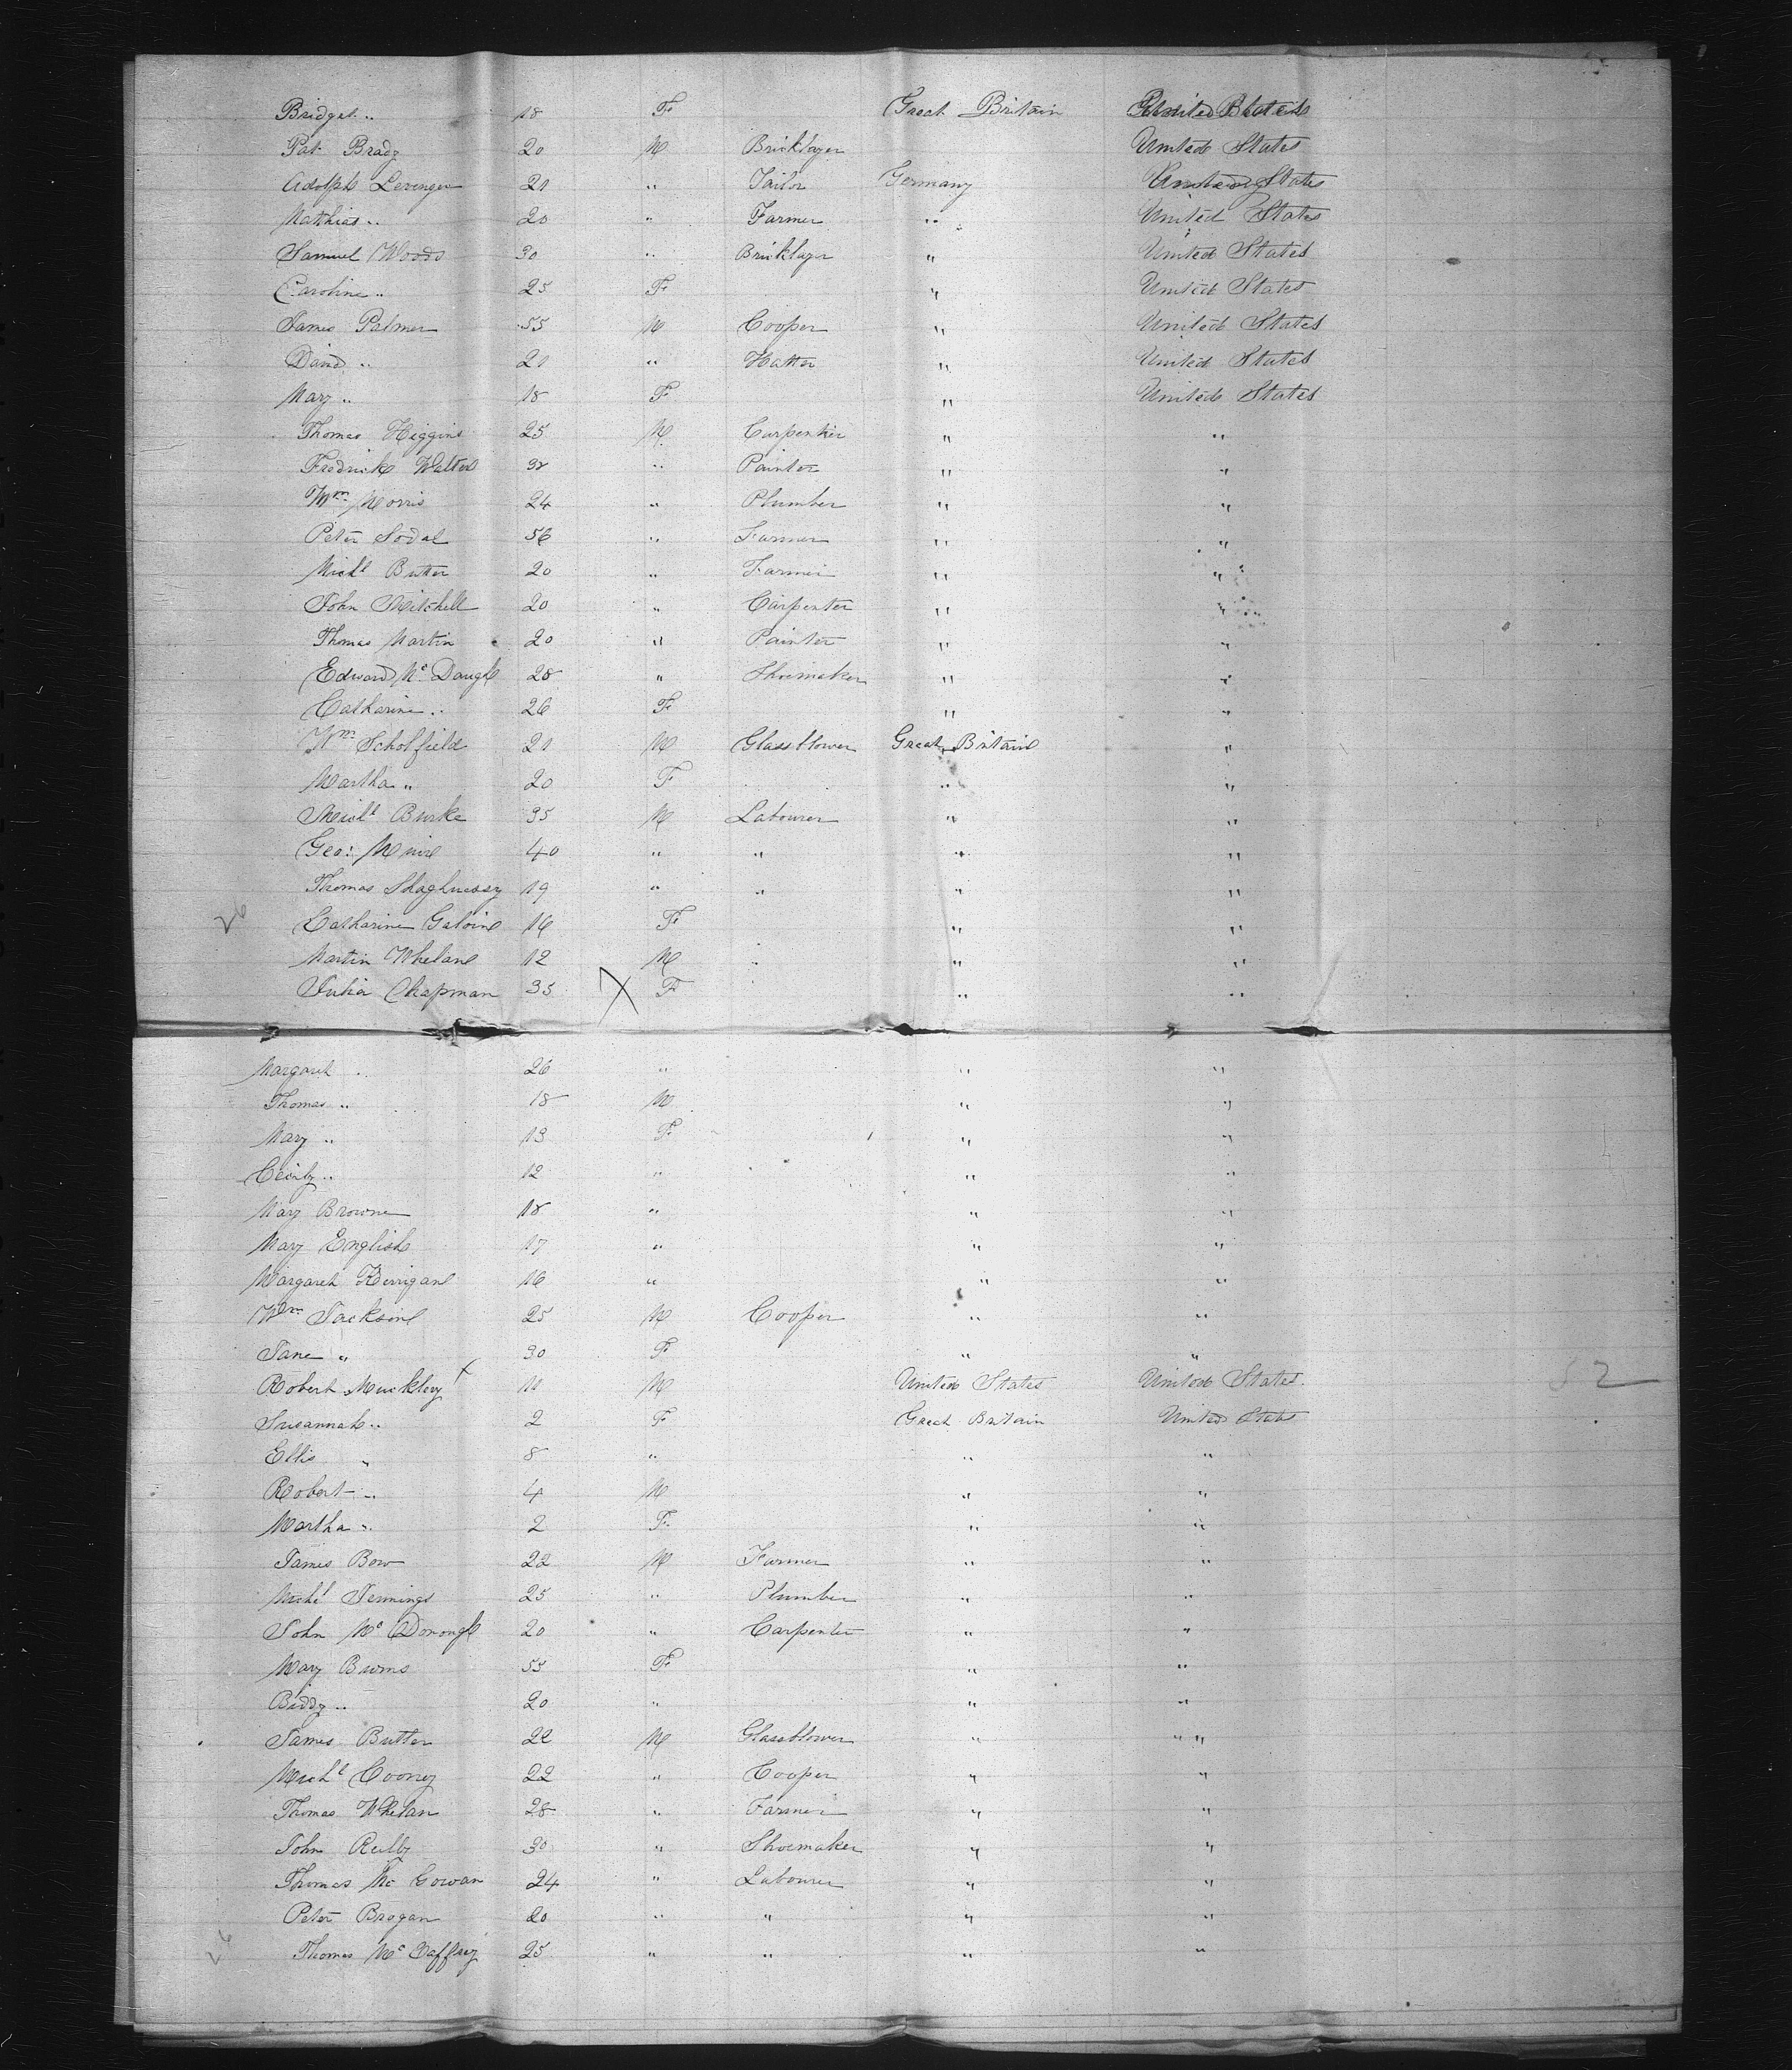 Bridget " 18 F Great Britain United States
Pat Brady 20 M Bricklayer United States
Adolph Levinger 21 " Tailor Germany United States
Mathias " 20 " Farmer " United States
Samuel Woods 30 " Bricklayer " United States
Caroline " 25 F " United States
James Palmer 55 M Cooper " United States
David " 21 " Hatter " United States
Mary " 18 F " United States
Thomas Higgins 25 M Carpenter " "
Fredrick Walters " Painter " "
Wm Morris 24 " Plumber " "
Peter Sodal 56 " Farmer " "
Michl Butter 20 " Farmer " "
John Mitchell 20 " Carpenter " "
Thomas Martin 20 " Painter " "
Edward Mc Daugh 28 " Shoemaker " "
Catharine " 26 F " "
Wm Scholfield 21 M Glassblower Great Britain "
Martha " 20 F " "
Michl Burke 35 M Labourer " "
Geo: Muir 40 " " " "
Thomas Shaghnessy 19 " " " "
26 Catharine Galvin 16 F " "
Martin Whelan 12 M " " "
Julia Chapman 35 X F " "
Margaret " 26 " " "
Thomas " 18 M " "
Mary " 13 F " "
Cecily " 12 " " "
Mary Browne 18 " " "
Mary English 17 " " "
Margaret Kerrigan 16 " " "
Wm Jackson 25 M Cooper " "
Jane " 30 F " "
Robert Muckley x 11 M United States United States
52
Susannah " 2 F Great Britain United States
Ellis " 8 " " "
Robert " 4 M " "
Martha " 2 F " "
James Bow 22 M Farmer " "
Michl Jennings 25 " Plumber " "
John Mc Donough 20 " Carpenter " "
Mary Burns 55 F " "
Biddy " 20 " " "
James Butter 22 M Glassblower " " "
Michl Cooney 22 " Cooper " "
Thomas Whelan 28 " Farmer " "
John Reilly 30 " Shoemaker " "
Thomas Mc Gowan 24 " Labourer " "
Peter Brogan 20 " " " "
26 Thomas Mc Caffrey 25 " " " "